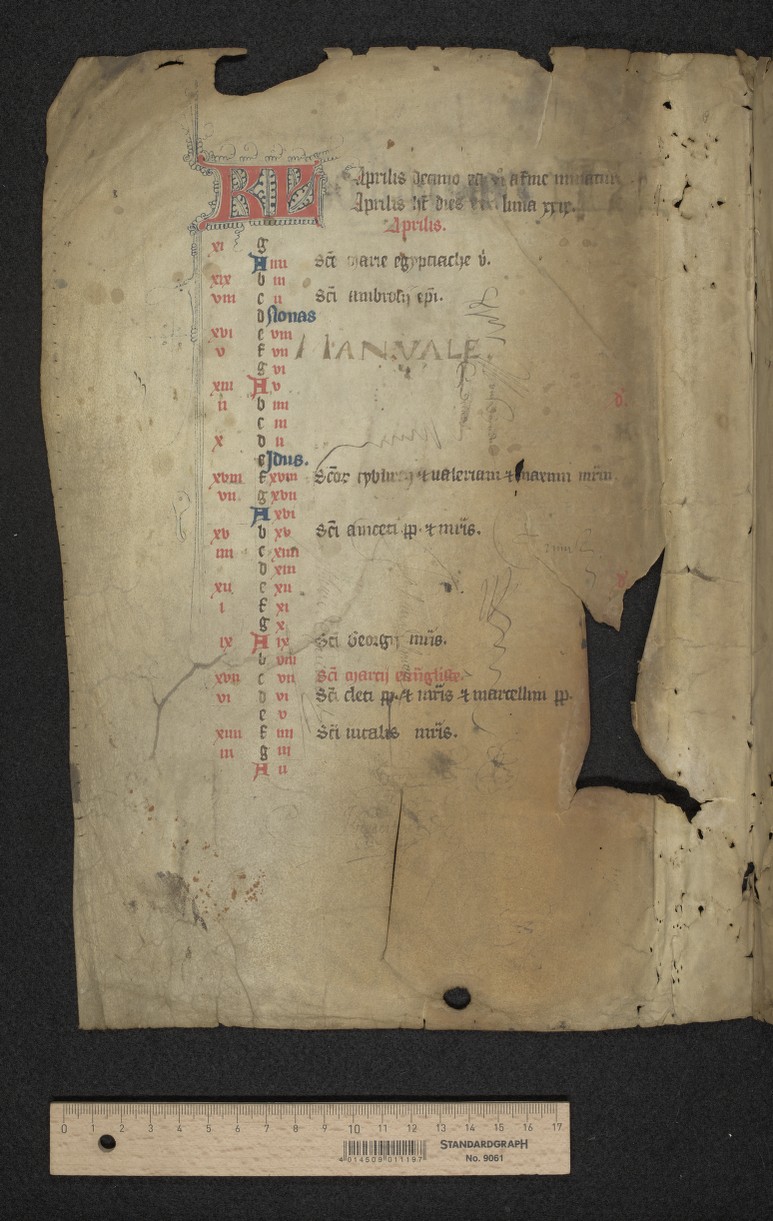 KL Aprilis decimo est
Aprilis ht̄ dies luna xxix.
Aprilis.
xi g
A iiii Sc̄e marie egyptiache v̄.
xix b iii
viii c ii Sc̄i ambrosij ep̄i.
d Nonas
xvi e viii
v f vii MANVALE
g vi
xiii A v
ii b iiii d.
c iii
x d ii
e Jdus.
xviii f xviii Sc̄or tyburcij ⁊ ualeriani ⁊ maximi mr̄m.
vii g xvii
A xvi
xv b xv Sc̄i aniceti pp. ⁊ mr̄is.
iiii c xiiii
d xiii
xii e xii d
i f xi
g x
ix A ix Sc̄i Georgij mr̄is.
b viii
xvii c vii Sc̄i marci ewūgliste.
vi d vi Sc̄i cleti pp. ⁊ mr̄is ⁊ marcellini pp.
e v
xiiii f iiii Sc̄i uitalis mr̄is.
iii g iii
A ii
0 1 2 3 4 5 6 7 8 9 10 11 12 13 14 15 16 17
4 014509 011197
STANDARDGRAPH
No. 9061